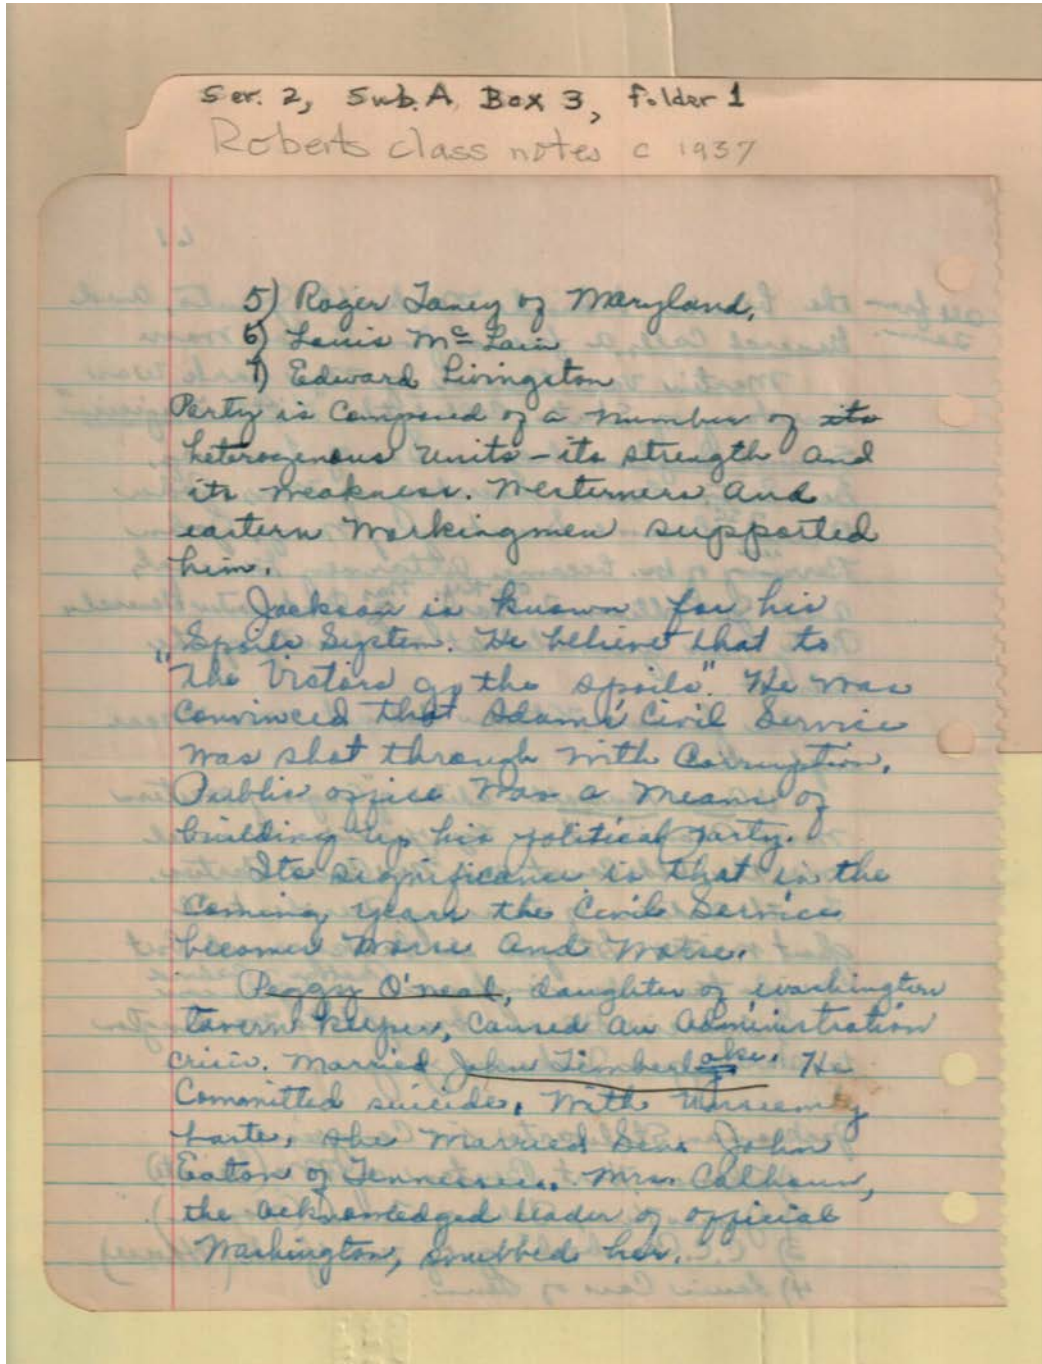 Ser. 2, Sub. A, Box 3, folder 1
Roberts class notes c 1937
5) Roger Taney of Maryland,
6) Louis Mc Lain
7) Edward Livingston
Party is composed of a number of its
heterogenous units - its strength and
its weakness. Westerners and
eastern workingmen supported
him.
Jackson is known for his
Spoils System. He believed that to
"The Victors go the spoils". He was
convinced that Adams' Civil Service
was shot through with corruption.
Public office was a means of
building up his political party.
Its significance is that in the
coming years the Civil Service
becomes worse and worse.
Peggy O'neal, daughter of washington
tavern keeper, caused an administration
crisis. Married John Timberlake. He
committed suicide. With unseemly
haste, she married Sen. John
Eaton of Tennessee. Mrs. Calhoun,
the acknowledged leader of official
Washington, snubbed her.